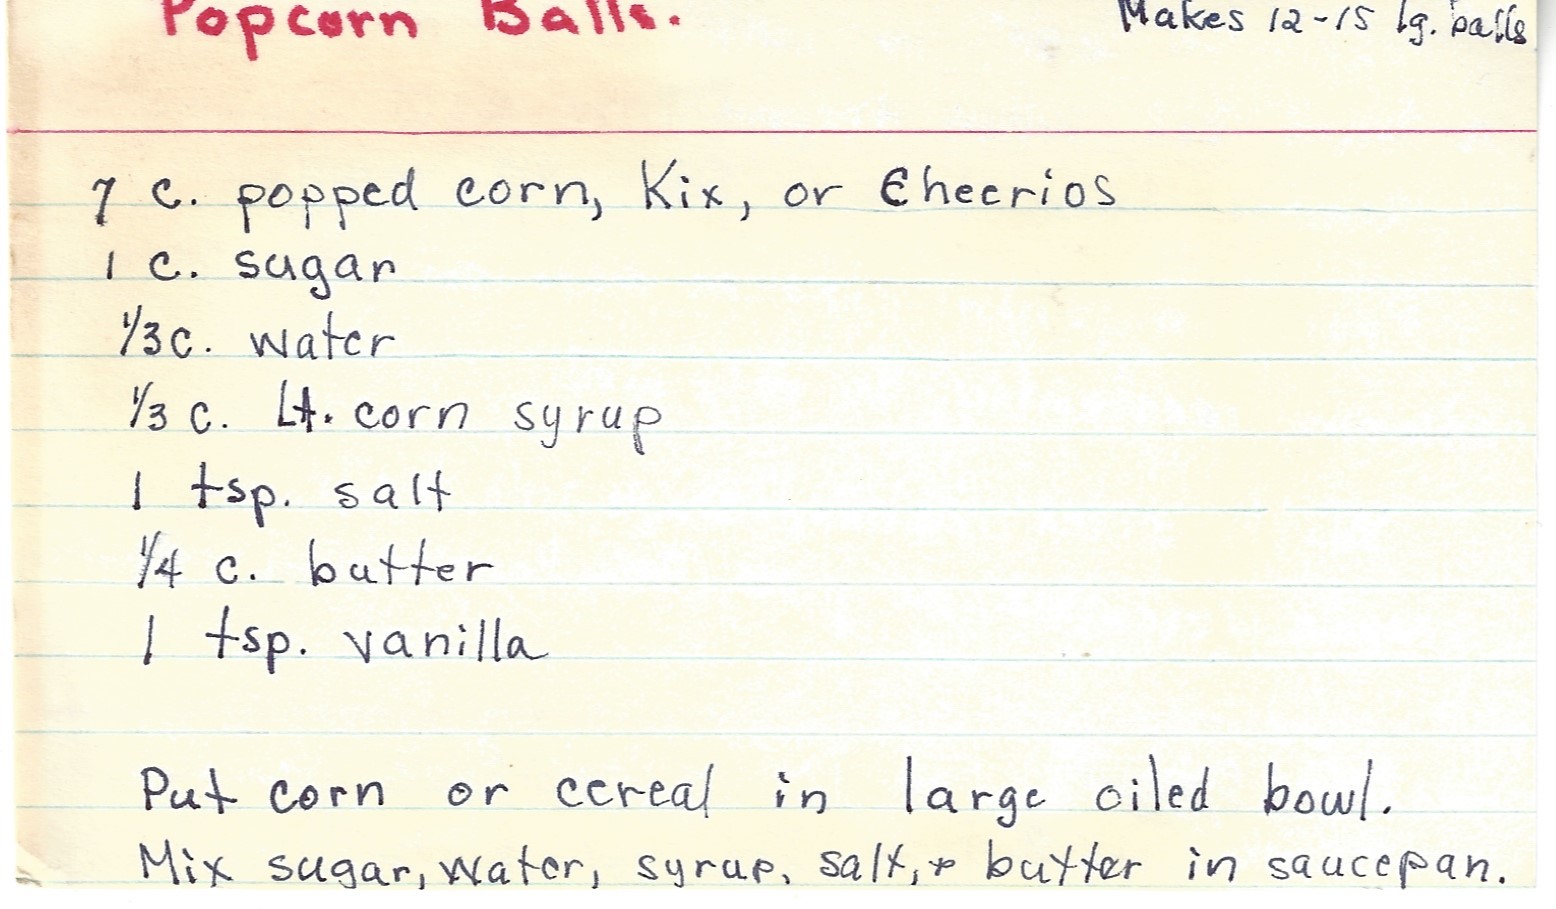 Popcorn Balls.
Makes 12-15 lg. balls
7 c. popped corn, Kix, or Cheerios
1 c. sugar
1/3 c. water
1/3 c. Lt. corn syrup
1 tsp. salt
1/4 c. butter
1 tsp. vanilla
Put corn or cereal in large oiled bowl.
Mix sugar, water, syrup, salt, + butter in saucepan.